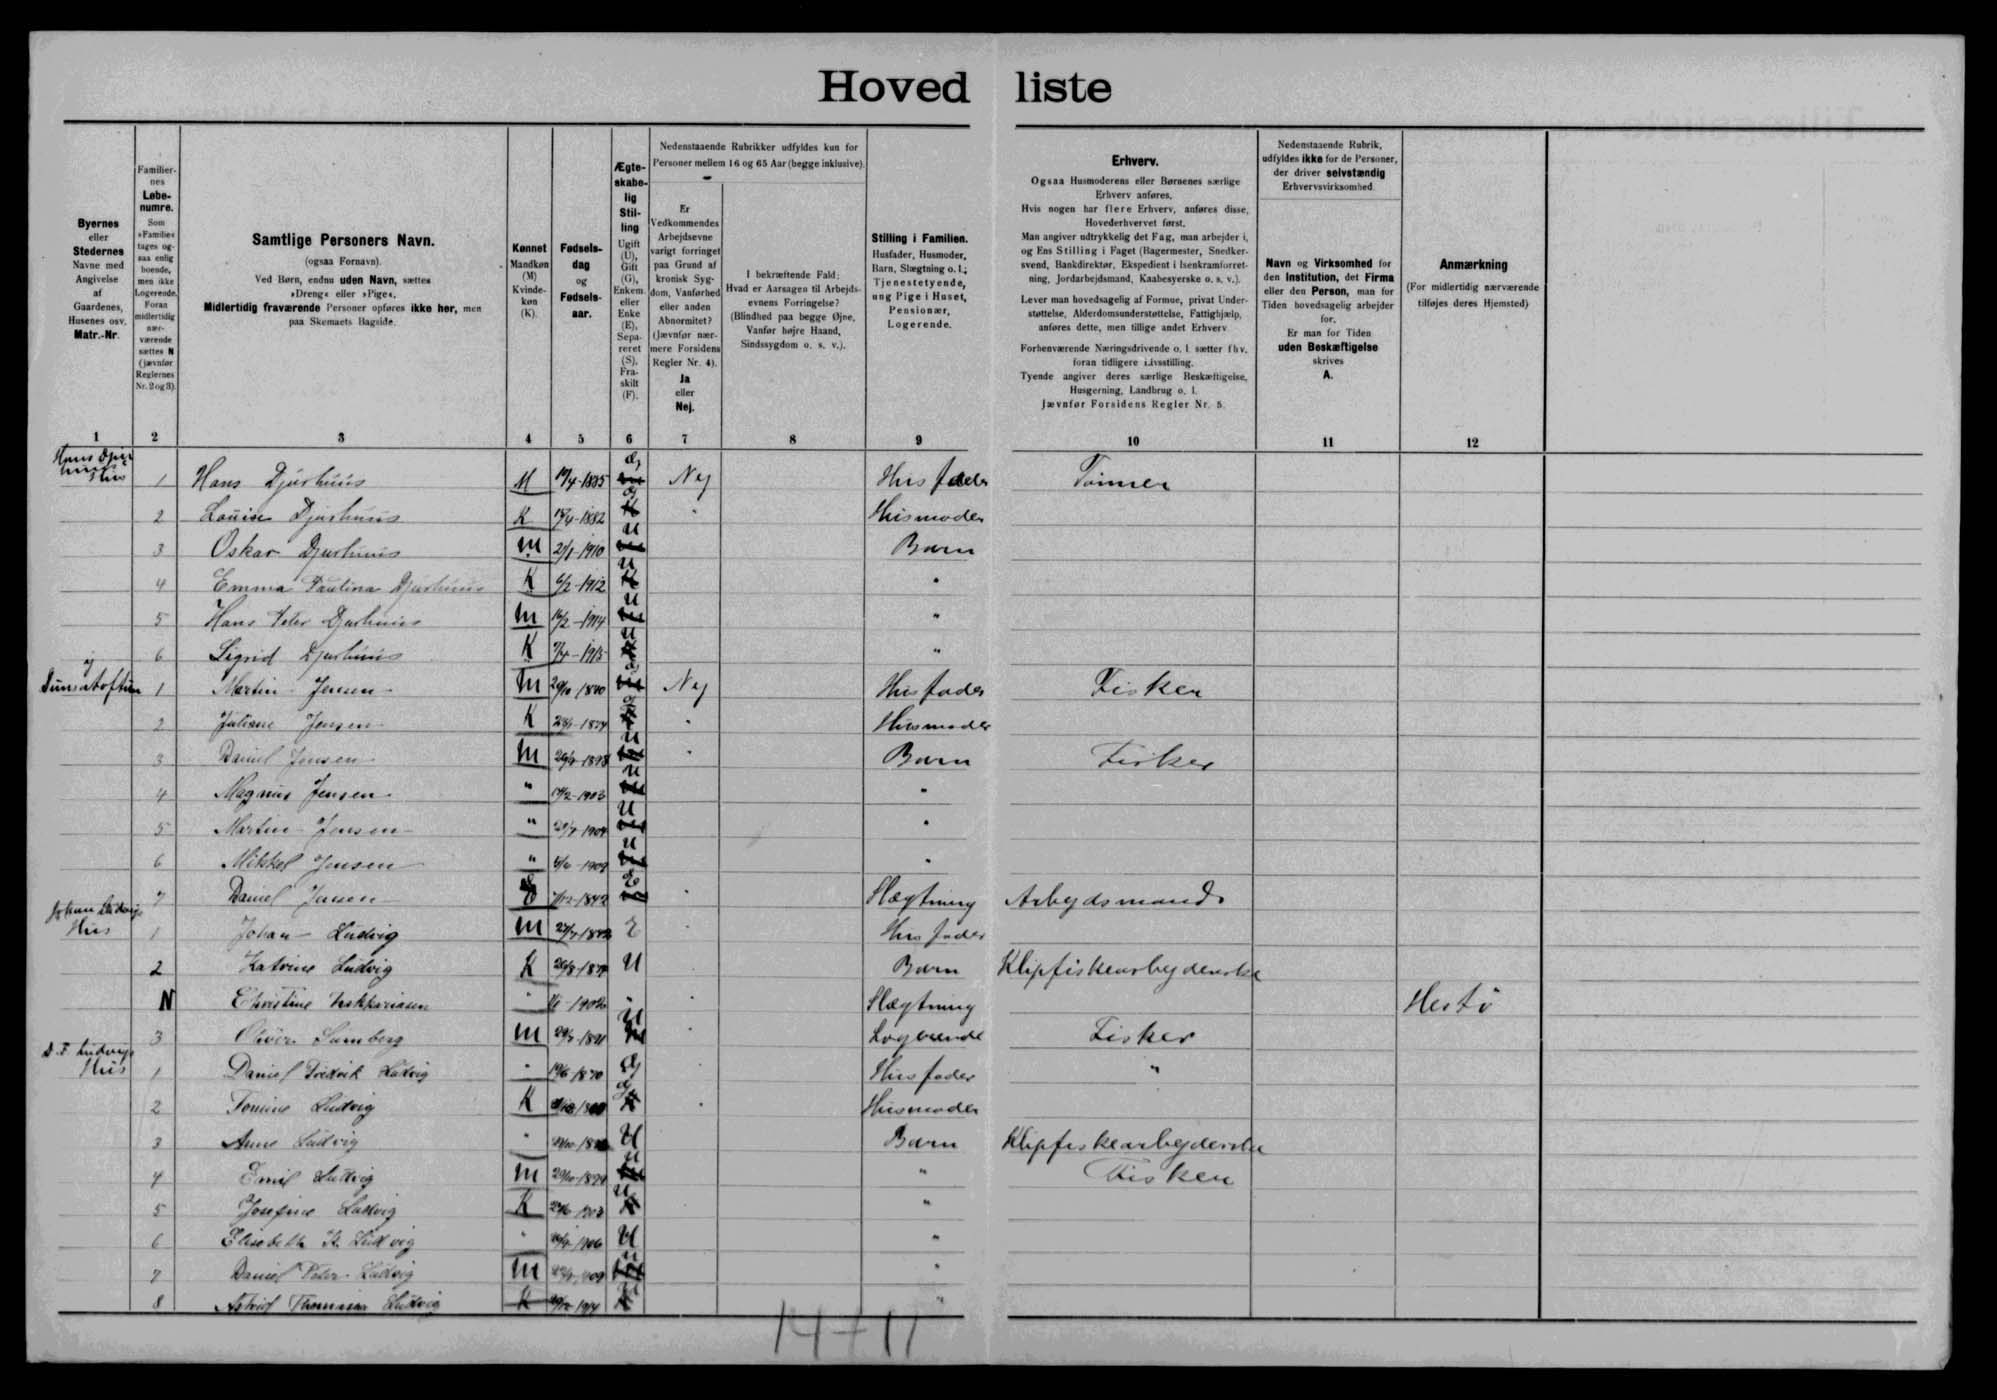 Hovedliste
Byernes eller Stedernes Navne med Angivelse af Gaardenes, Husenes osv. Matr.-Nr.
Familiernes Løbenumre. Som »Familie« tages ogsaa enlig boende, men ikke Logerende. Foran midlertidig nærværende sættes N (jævnfør Reglernes Nr. 2 og 3).
Samtlige Personers Navn.
(ogsaa Fornavn).
Ved Børn, endnu uden Navn, sættes
»Dreng« eller »Pige«.
Midlertidig fraværende Personer opføres ikke her, men
paa Skemaets Bagside.
Kønnet Mandkøn (M) Kvindekøn (K).
Fødselsdag og Fødselsaar.
Ægteskabelig Stilling Ugift (U), Gift (G), Enkem. eller Enke (E), Separeret (S), Fraskilt (F).
Nedenstaaende Rubrikker udfyldes kun for
Personer mellem 16 og 65 Aar (begge inklusive).
Er Vedkommendes Arbejdsevne varigt forringet paa Grund af kronisk Sygdom, Vanførhed eller anden Abnormitet? (Jævnfør nærmere Forsidens Regler Nr. 4). Ja eller Nej.
I bekræftende Fald: Hvad er Aarsagen til Arbejdsevnens Forringelse? (Blindhed paa begge Øjne, Vanfør højre Haand, Sindssygdom o. s. v.).
Stilling i Familien.
Husfader, Husmoder, Barn, Slægtning o. l.; Tjenestetyende, ung Pige i Huset, Pensionær, Logerende.
Erhverv.
Ogsaa Husmoderens eller Børnenes særlige
Erhverv anføres.
Hvis nogen har flere Erhverv, anføres disse,
Hovederhvervet først.
Man angiver udtrykkelig det Fag, man arbejder i,
og Ens Stilling i Faget (Bagermester, Snedkersvend, Bankdirektør, Ekspedient i Isenkramforretning, Jordarbejdsmand, Kaabesyerske o. s. v.).
Lever man hovedsagelig af Formue, privat Understøttelse, Alderdomsunderstøttelse, Fattighjælp,
anføres dette, men tillige andet Erhverv
Forhenværende Næringsdrivende o. l. sætter fhv.
foran tidligere Livsstilling.
Tyende angiver deres særlige Beskæftigelse,
Husgerning, Landbrug o. l.
Jævnfør Forsidens Regler Nr. 5.
Nedenstaaende Rubrik,
udfyldes ikke for de Personer,
der driver selvstændig
Erhvervsvirksomhed.
Navn og Virksomhed for
den Institution, det Firma
eller den Person, man for
Tiden hovedsagelig arbejder
for.
Er man for Tiden
uden Beskæftigelse
skrives
A.
Anmærkning
(For midlertidig nærværende
tilføjes deres Hjemsted)
1 2 3 4 5 6 7 8 9 10 11 12
Hus
1 Hans Djurhuus M 1885 Nej Husfader Tømmer
2 Louise Djurhuus K 1882 " Husmoder
3 Oskar Djurhuus M 1910 U Barn
4 Emma Paulina Djurhuus K 6/2-1912 U "
5 Hans Peter Djurhuus M 1914 U "
6 Sigrid Djurhuus K 1915 U "
1 Martin Jensen M Nej Husfader Fisker
2 Juliane Jensen K 1874 " Husmoder
3 Daniel Jensen M 1898 U " Barn Fisker
4 Magnus Jensen " 1903 U "
5 Martin Jensen " U "
6 Mikkel Jensen " 1909 U "
7 Daniel Jensen 1842 E " Slægtning Arbejdsmand
Johan Ludvigs
Hus
1 Johan Ludvig M E " Husfader
2 Katrine Ludvig K U " Barn Klipfiskearbejderske
N " " " Slægtning
3 M U " Logerende Fisker
D. F. Ludvigs
Hus
1 Daniel Fredrik Ludvig " 1870 " Husfader "
2 Ludvig K " Husmoder
3 Anne Ludvig " U Barn Klipfiskearbejderske
4 Emil Ludvig M U " Fisker
5 Josefine Ludvig K 1903 U "
6 Elisabeth K. Ludvig " 1906 U "
7 Daniel Peter Ludvig M 1909 U "
8 Astrid Ludvig K 1914 "
14+11